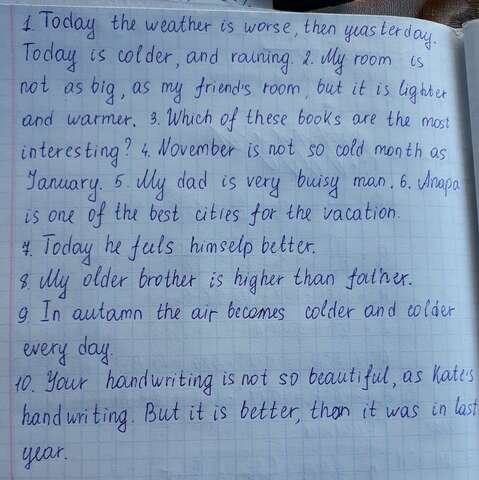 1. Today the weather is worse, then yeasterday.
Today is colder, and raining. 2. My room is
not as big, as my friend's room, but it is lighter
and warmer. 3. Which of these books are the most
interesting? 4. November is not so cold month as
January. 5. My dad is very buisy man. 6. Anapa
is one of the best cities for the vacation.
7. Today he feels himselp better.
8. My older brother is higher than father.
9. In autamn the air becomes colder and colder
every day.
10. Your handwriting is not so beautiful, as Kate's
handwriting. But it is better, then it was in last
year.